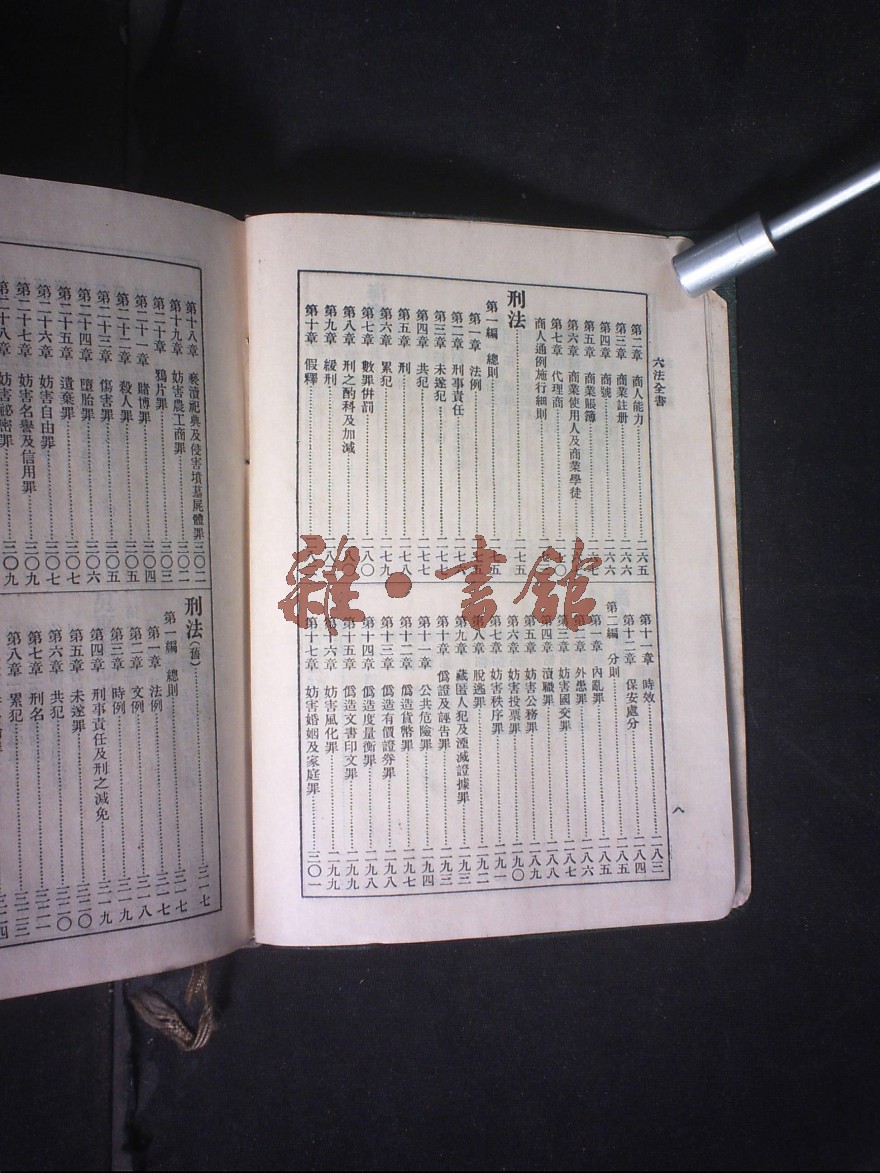 六法全書
第二章 商人能力 二六五
第三章 商業註册 二六六
第四章 商號 二六六
第五章 商業賬簿
第六章 商業使用人及商業學徒
第七章 代理商
商人通例施行細則
刑法 二七五
第一編 總則
第一章 法例
第二章 刑事責任
第三章 未遂犯 二七七
第四章 共犯 二七七
第五章 刑 二七八
第六章 累犯 二七九
第七章 數罪併罰 二八〇
第八章 刑之酌科及加減
第九章 緩刑
第十章 假釋
第十一章 時效 二八三
第十二章 保安處分 二八四
第二編 分則 二八五
第一章 內亂罪 二八五
第二章 外患罪 二八六
第三章 妨害國交罪 二八七
第四章 瀆職罪 二八八
第五章 妨害公務罪 二八九
第六章 妨害投票罪 二九〇
第七章 妨害秩序罪 二九一
第八章 脫逃罪 二九二
第九章 藏匿人犯及湮滅證據罪 二九三
第十章 僞證及誣告罪 二九三
第十一章 公共危險罪 二九四
第十二章 僞造貨幣罪 二九七
第十三章 僞造有價證券罪 二九八
第十四章 僞造度量衡罪 二九八
第十五章 僞造文書印文罪 二九九
第十六章 妨害風化罪 二九九
第十七章 妨害婚姻及家庭罪 三〇一
八
第十八章 褻瀆祀典及侵害墳墓屍體罪 三〇二
第十九章 妨害農工商罪 三〇二
第二十章 鴉片罪 三〇三
第二十一章 賭博罪 三〇四
第二十二章 殺人罪 三〇五
第二十三章 傷害罪 三〇五
第二十四章 墮胎罪 三〇六
第二十五章 遺棄罪 三〇七
第二十六章 妨害自由罪 三〇七
第二十七章 妨害名譽及信用罪 三〇九
第二十八章 妨害祕密罪 三〇九
刑法(舊) 三一七
第一編 總則 三一七
第一章 法例 三一七
第二章 文例 三一八
第三章 時例 三一九
第四章 刑事責任及刑之減免 三一九
第五章 未遂罪 三二〇
第六章 共犯 三二〇
第七章 刑名
第八章 累犯
雜·書館